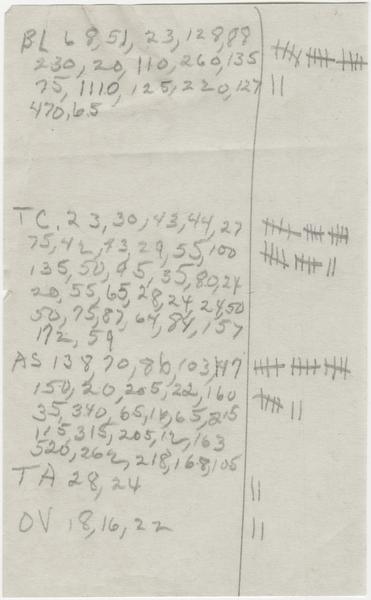 BL 68,51, 23,128,88
230,20,110,260,135
75,1110,125,220,127
470,65
TC. 23,30,43,44,27
75,42,43,29,55,100
135,50,95,35,80,24
20,55,65,28,24,24,50
50,75,87,64,84,157
172,59
AS 138,70,80,103,117
150,20,205,22,160
35,340,65,16,65,215
115,315,205,12,163
520,262,218,168,105
TA 28,24
OV 18,16,22